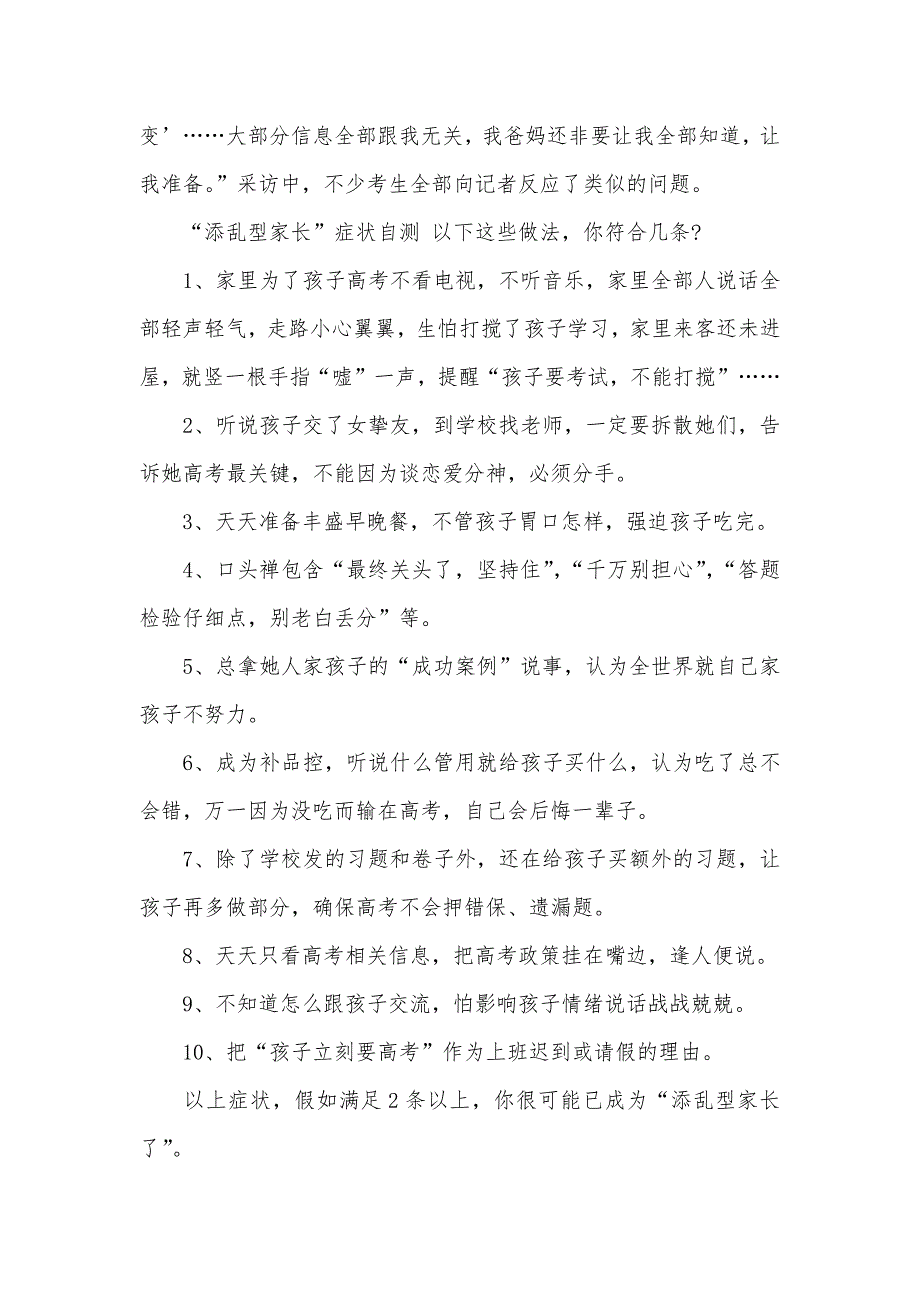 变’……大部分信息全部跟我无关，我爸妈还非要让我全部知道，让
我准备。”采访中，不少考生全部向记者反应了类似的问题。
“添乱型家长”症状自测 以下这些做法，你符合几条?
1、家里为了孩子高考不看电视，不听音乐，家里全部人说话全
部轻声轻气，走路小心翼翼，生怕打搅了孩子学习，家里来客还未进
屋，就竖一根手指“嘘”一声，提醒“孩子要考试，不能打搅”……
2、听说孩子交了女挚友，到学校找老师，一定要拆散她们，告
诉她高考最关键，不能因为谈恋爱分神，必须分手。
3、天天准备丰盛早晚餐，不管孩子胃口怎样，强迫孩子吃完。
4、口头禅包含“最终关头了，坚持住”，“千万别担心”，“答题
检验仔细点，别老白丢分”等。
5、总拿她人家孩子的“成功案例”说事，认为全世界就自己家
孩子不努力。
6、成为补品控，听说什么管用就给孩子买什么，认为吃了总不
会错，万一因为没吃而输在高考，自己会后悔一辈子。
7、除了学校发的习题和卷子外，还在给孩子买额外的习题，让
孩子再多做部分，确保高考不会押错保、遗漏题。
8、天天只看高考相关信息，把高考政策挂在嘴边，逢人便说。
9、不知道怎么跟孩子交流，怕影响孩子情绪说话战战兢兢。
10、把“孩子立刻要高考”作为上班迟到或请假的理由。
以上症状，假如满足2条以上，你很可能已成为“添乱型家长
了”。